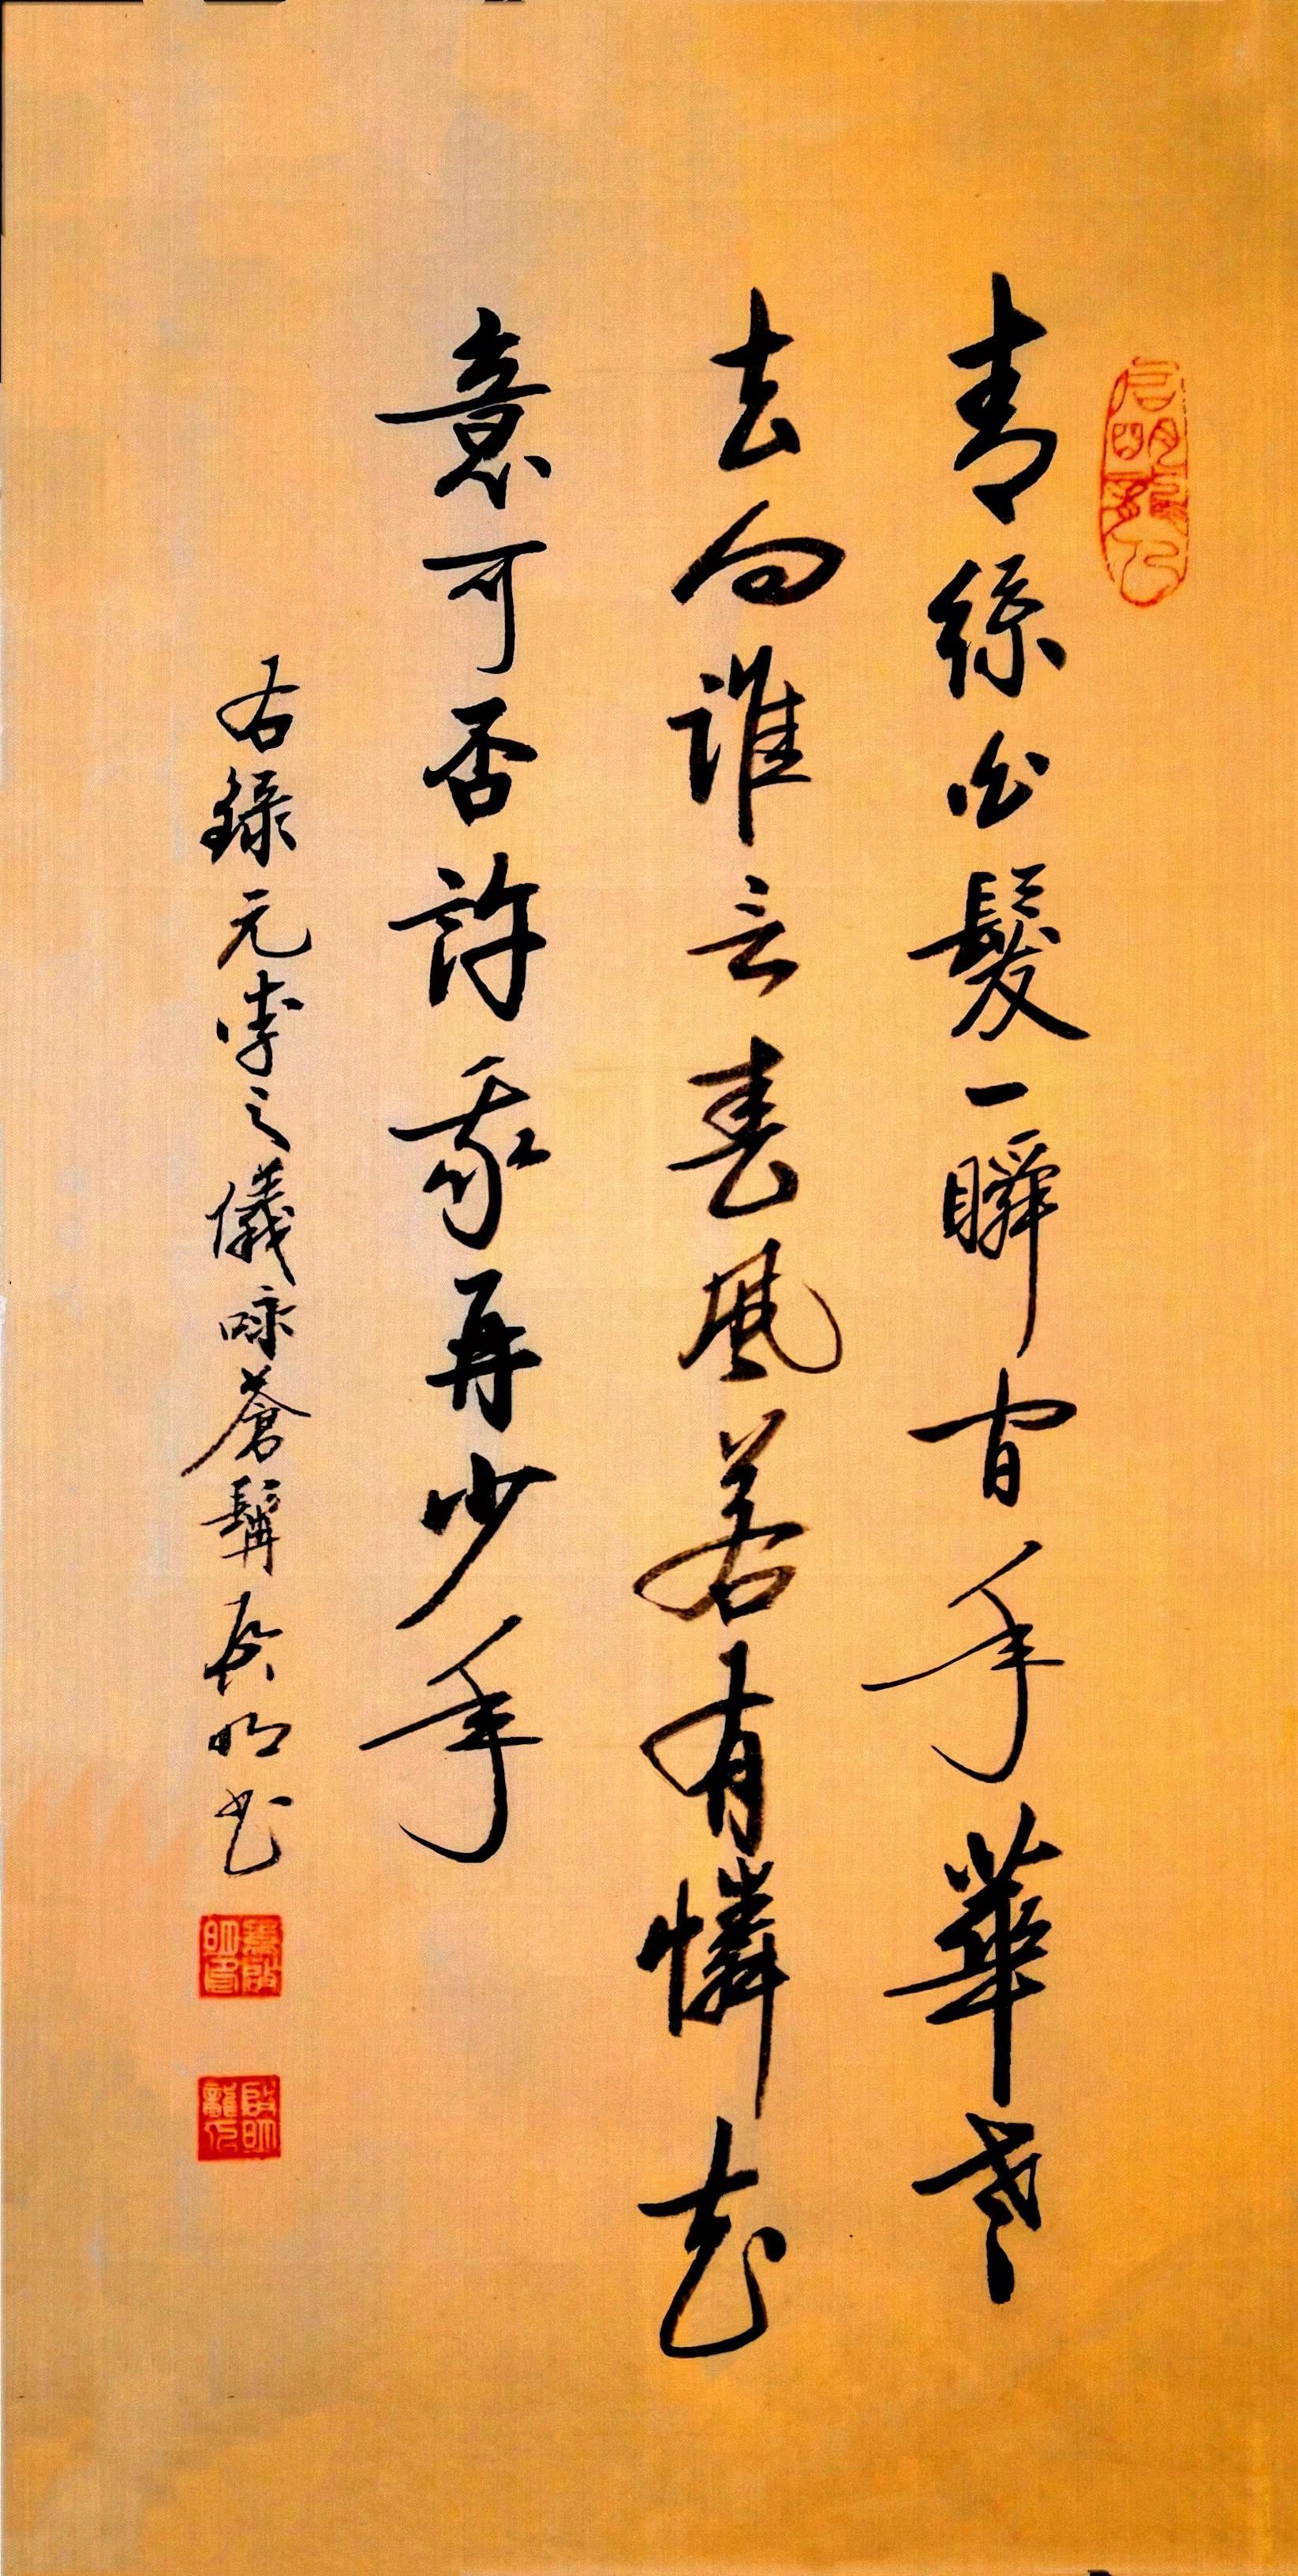 青絲白髮一瞬間年華老
去向誰言春風若有憐花
意可否許我再少年
右錄元李之儀咏蒼髯啟明書